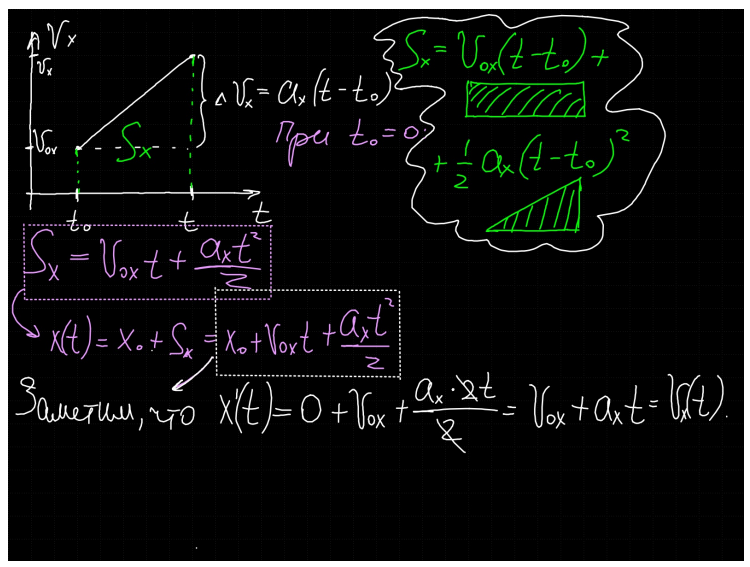 Vx
Vx
V₀x
Sx
t₀ t t
ΔVx = ax(t-t₀)
При t₀ = 0:
Sx = V₀x(t-t₀) +
+ 1/2 ax(t-t₀)²
Sx = V₀x t + axt²/2
x(t) = x₀ + Sx = x₀ + V₀x t + axt²/2
Заметим, что x'(t) = 0 + V₀x + ax·2t/2 = V₀x + axt = Vx(t).